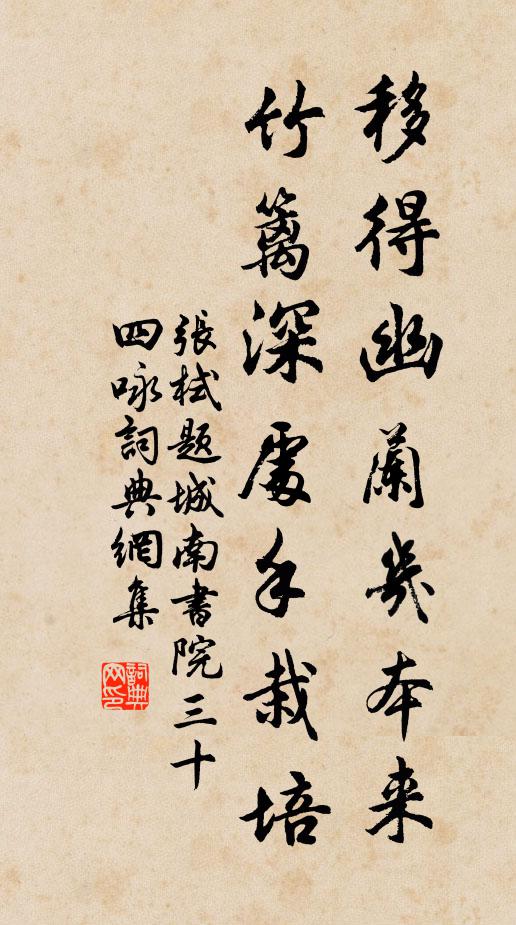 移得幽蘭幾本来
竹籬深處手栽培
張栻題城南書院三十
四咏詞典網集
詞典
网印